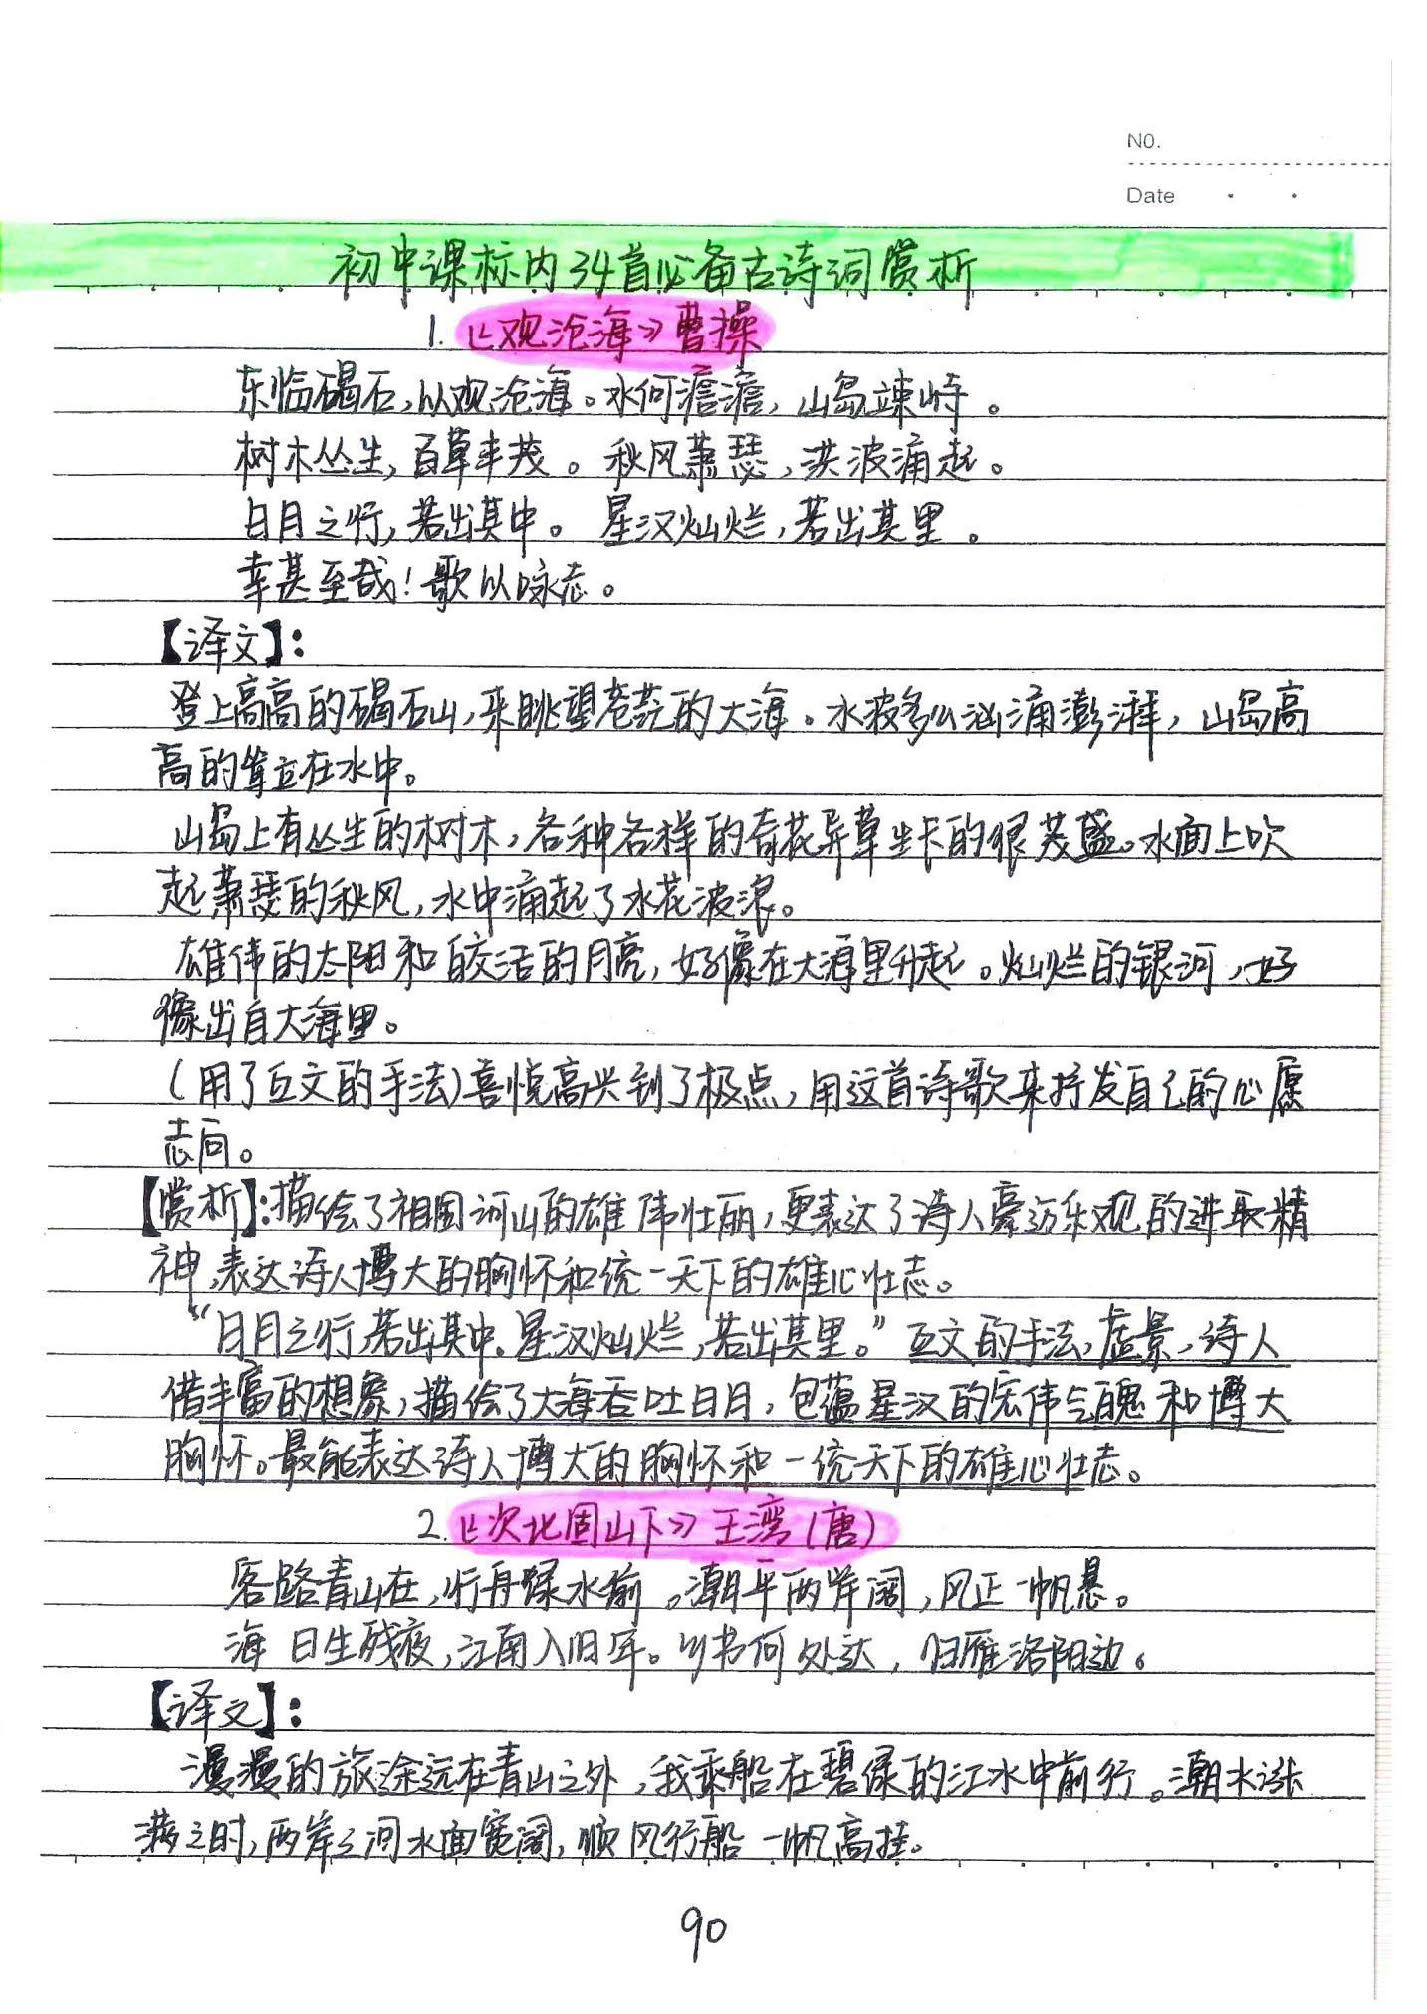 NO.
Date
初中课标内34首必备古诗词赏析
1.《观沧海》曹操
东临碣石,以观沧海。水何澹澹,山岛竦峙。
树木丛生,百草丰茂。秋风萧瑟,洪波涌起。
日月之行,若出其中。星汉灿烂,若出其里。
幸甚至哉!歌以咏志。
【译文】:
登上高高的碣石山,来眺望苍茫的大海。水波多么汹涌澎湃,山岛高
高的耸立在水中。
山岛上有丛生的树木,各种各样的奇花异草生长的很茂盛。水面上吹
起萧瑟的秋风,水中涌起了水花波浪。
雄伟的太阳和皎洁的月亮,好像在大海里升起。灿烂的银河,好
像出自大海里。
(用了互文的手法)喜悦高兴到了极点,用这首诗歌来抒发自己的心愿
志向。
【赏析】:描绘了祖国河山的雄伟壮丽,更表达了诗人豪迈乐观的进取精
神,表达诗人博大的胸怀和统一天下的雄心壮志。
“日月之行,若出其中.星汉灿烂,若出其里。”互文的手法,虚景,诗人
借丰富的想象,描绘了大海吞吐日月,包蕴星汉的宏伟气魄和博大
胸怀。最能表达诗人博大的胸怀和一统天下的雄心壮志。
2.《次北固山下》王湾(唐)
客路青山在,行舟绿水前。潮平两岸阔,风正一帆悬。
海日生残夜,江南入旧年。乡书何处达,归雁洛阳边。
【译文】:
漫漫的旅途远在青山之外,我乘船在碧绿的江水中前行。潮水涨
满之时,两岸之间水面宽阔,顺风行船一帆高挂。
90